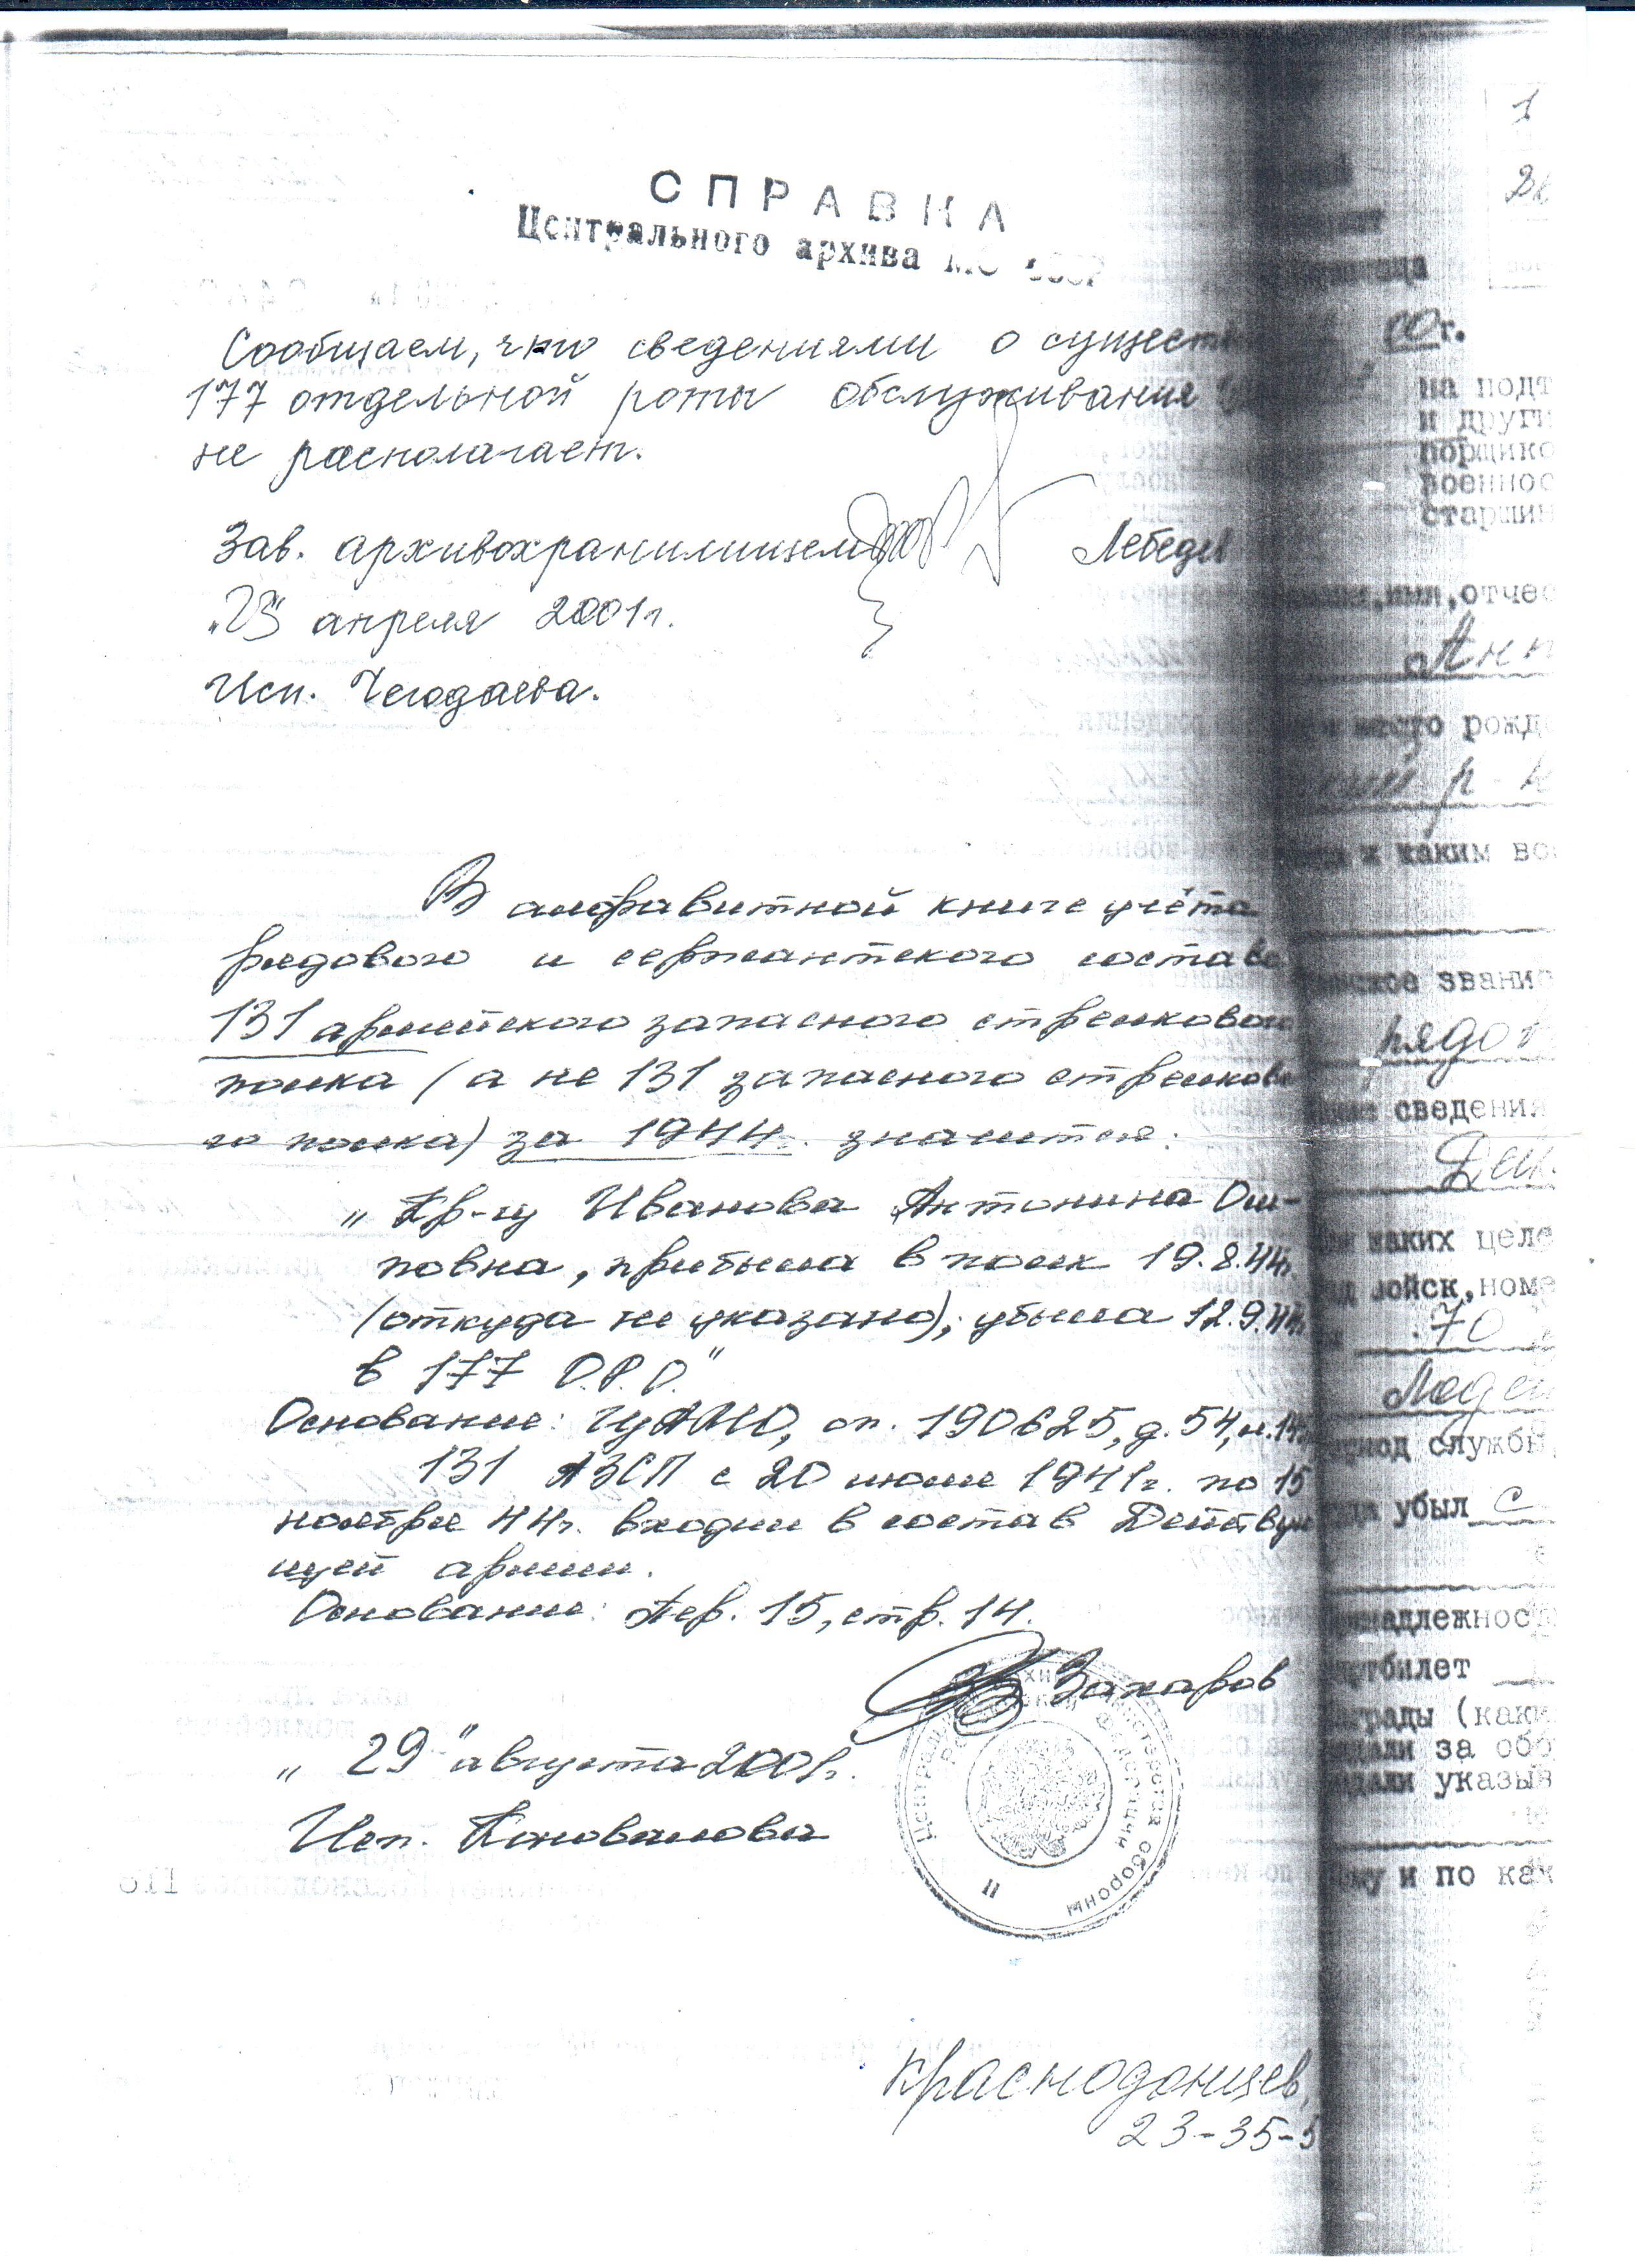 СПРАВКА
Центрального архива МО СССР
Сообщаем, что сведениями о существ
177 отдельной роты обслуживания
не располагает.
Зав. архивохранилищем Лебедев
"25" апреля 2001г.
Исп. Чегодаева.
В алфавитной книге учёта
рядового и сержантского состава
131 армейского запасного стрелкового
полка (а не 131 запасного стрелково
го полка) за 1944г. значится:
„Кр-ц Иванова Антонина Оси-
повна, прибыла в полк 19.8.44г.
(откуда не указано), убыла 12.9.44г.
в 177 О.Р.О."
Основание: ЦАМО, оп. 190625, д. 54, л.
131 АЗСП с 20 июля 1941г. по 15
ноября 44г. входил в состав Действую
щей армии.
Основание: Пер. 15, стр. 14.
Захаров
„29" августа 2001г.
Исп. Коновалова
Краснодонцев,
23-35-5
1
00г.
на подт
и други
порщико
военнос
старшин
имя, отчес
Анн
место рожд
р-н
и каким во
звани
рядов
сведения
каких целе
войск, номе
70
служб
убыл с
надлежнос
партбилет
награды (каки
за обо
указыв
и по как